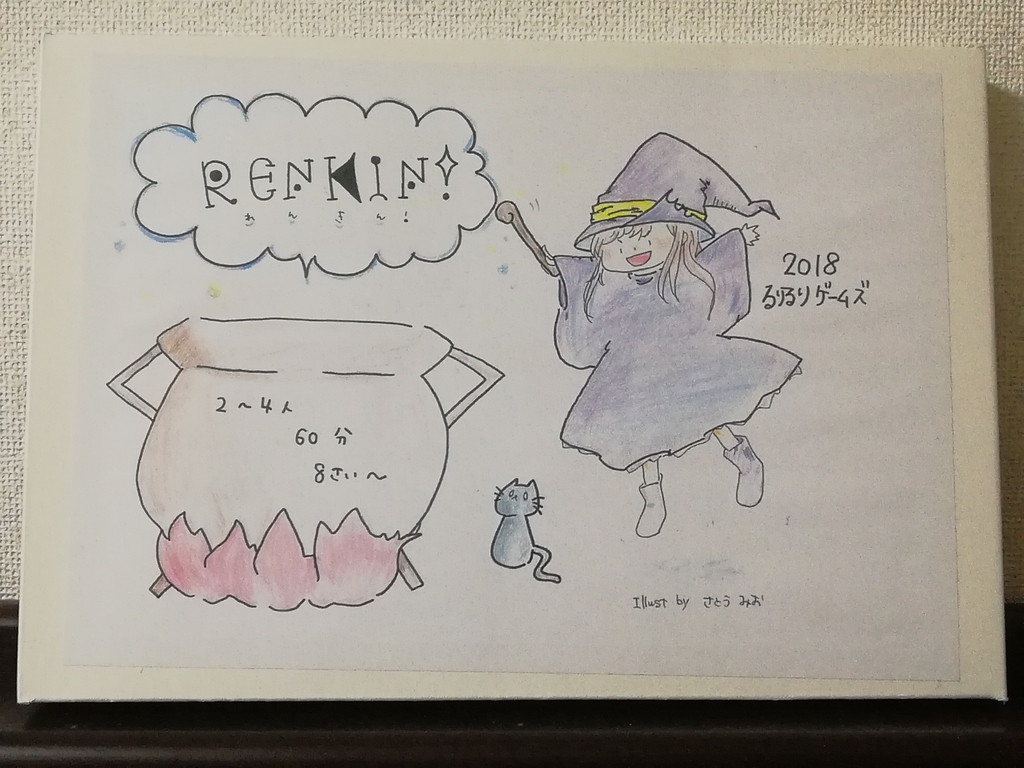 RENKIN!
れんきん!
2018
るりるりゲームズ
2~4人
60分
8さい~
Illust by さとう みお